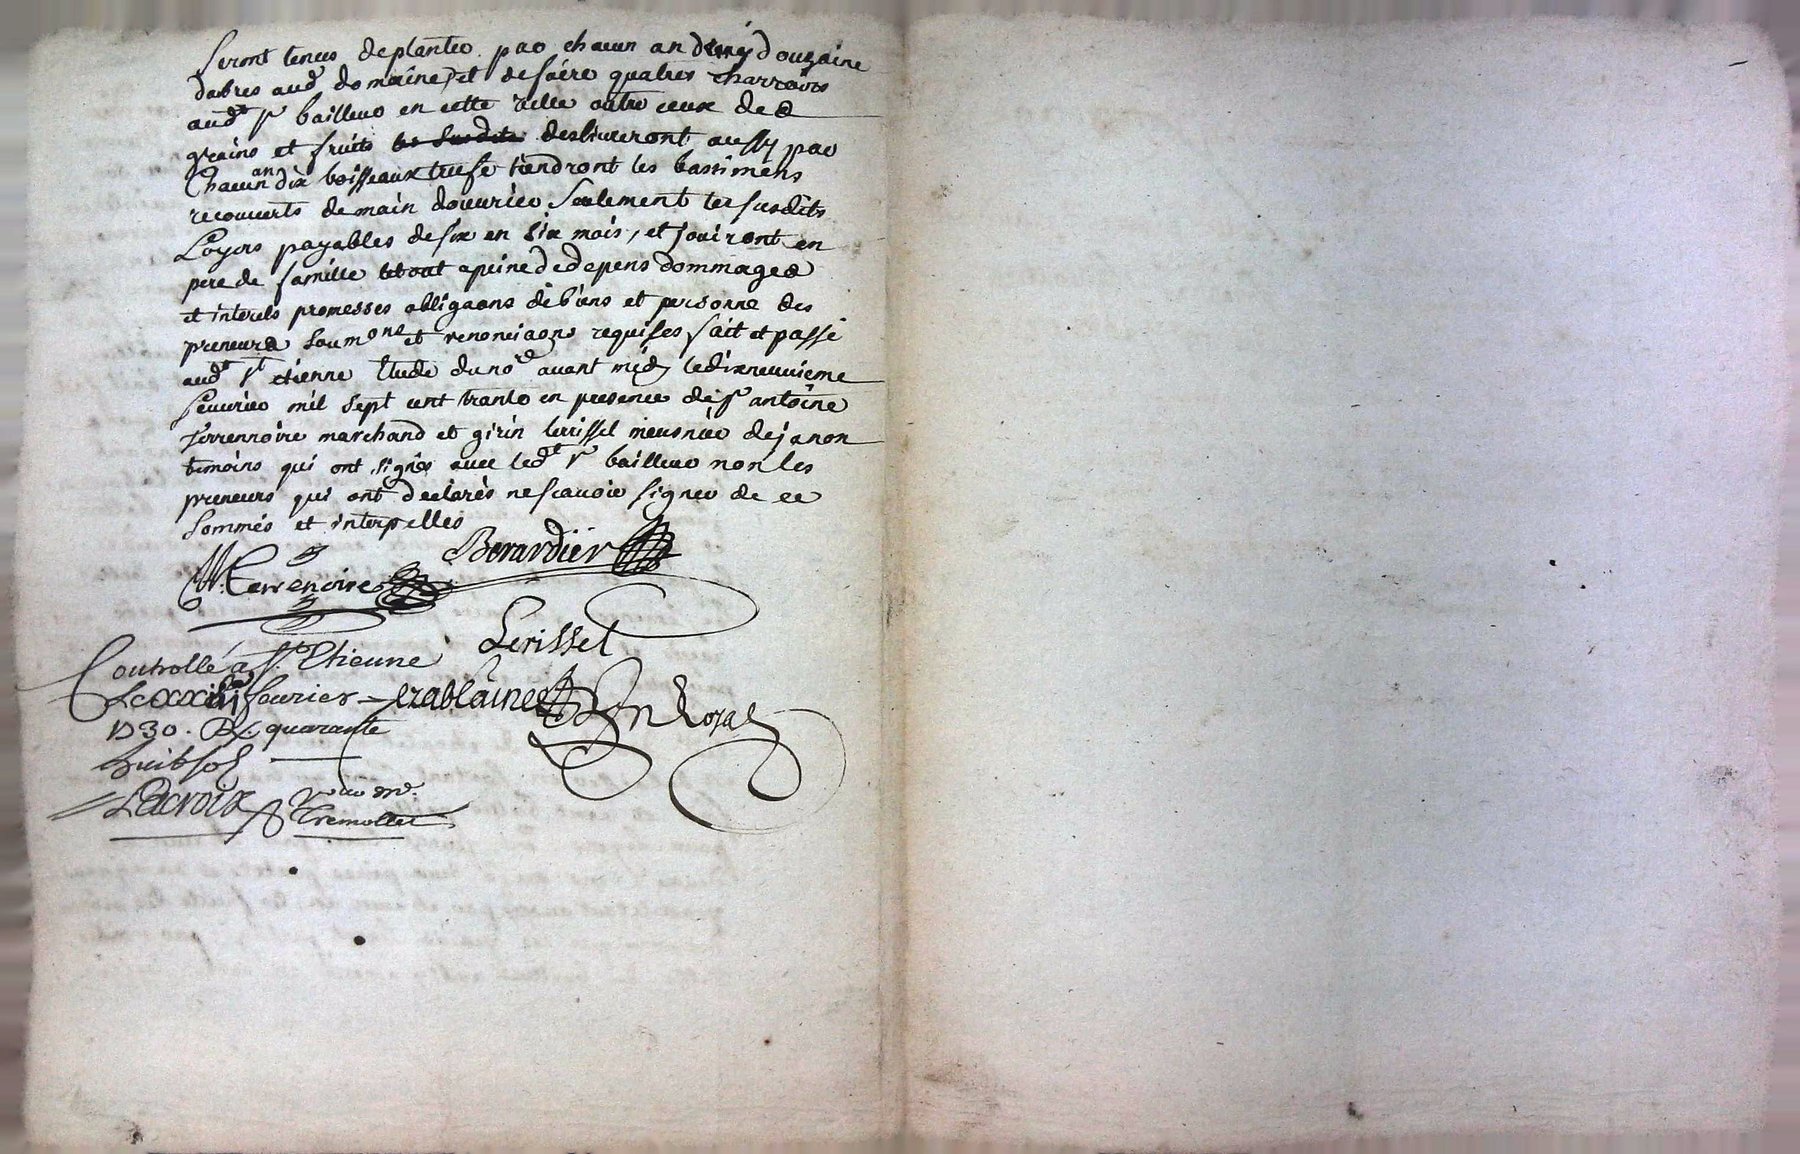 Seront tenus deplanter par chacun an demy douzaine
dabres aud. domaine, et defaire quatres charrois
aud. sr bailleur en cette ville outre ceux des
grains et fruits les susdits deslivreront aussy par
Chacun an dix boisseaux truffe tiendront les bastimens
recouverts demain douvrier Seulement les susdits
Loyers payables desix en six mois, et jouiront en
pere de famille letout apeine dedepens dommages
et interets promesses obligaons debiens et personne des
preneurs soumone et renonciaons requises fait et passé
aud. St etienne Etude duno.re avant midy ledixneuvieme
feuvrier mil sept cent trante en presence de sr antoine
terrennoire marchand et girin lerissel meusnier dejanon
temoins qui ont signés avec led. sr bailleur non les
preneurs qui ont declarés nescavoir signer de ce
sommés et interpellés
Berardier
Terrenoire
Lerissel
Controllé a St. Etienne
Le feurier
1730. R. quarante
huit sols
Lacroix
Tremollet